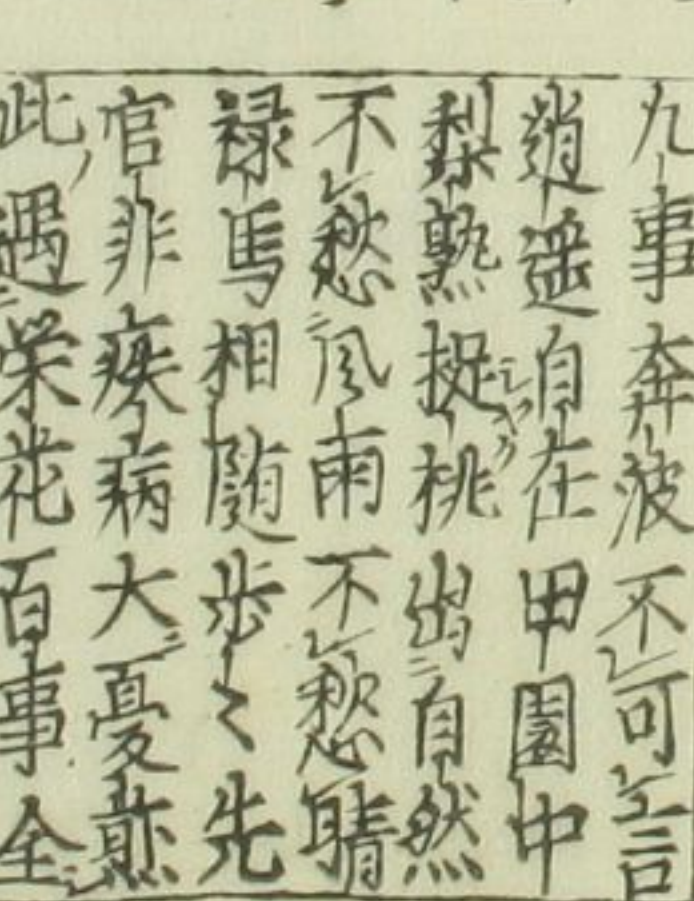 九事奔波不可言
逍遥自在甲園中
梨熟捉桃出自然
不愁風雨不愁晴
禄馬相随歩〻先
官非疾病大憂煎
此遇栄花百事全